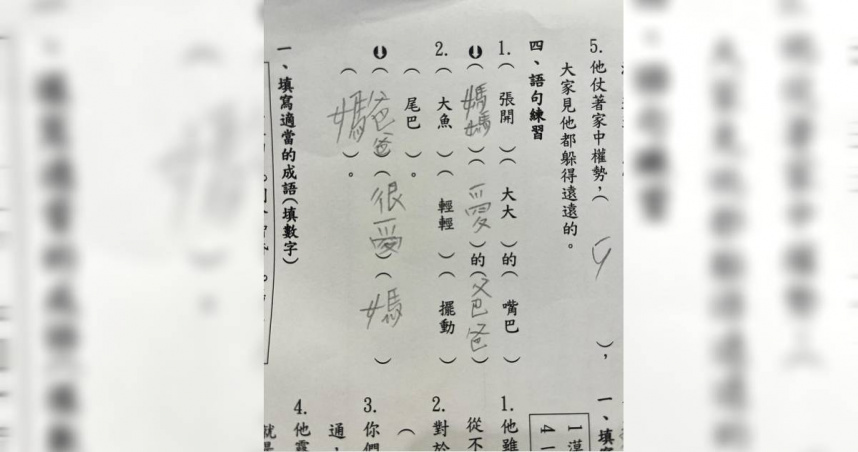 5.他仗著家中權勢，（ 5 ），
大家見他都躲得遠遠的。
四、語句練習
1.（張開）（大大）的（嘴巴）
（媽媽）（愛）的（爸爸）
2.（大魚）（輕輕）（擺動）
（尾巴）。
（爸爸）（很愛）（媽）
（媽）。
一、填寫適當的成語（填數字）
一、填
1.他雖
從不
2.對於
（
3.你們
通，
4.他